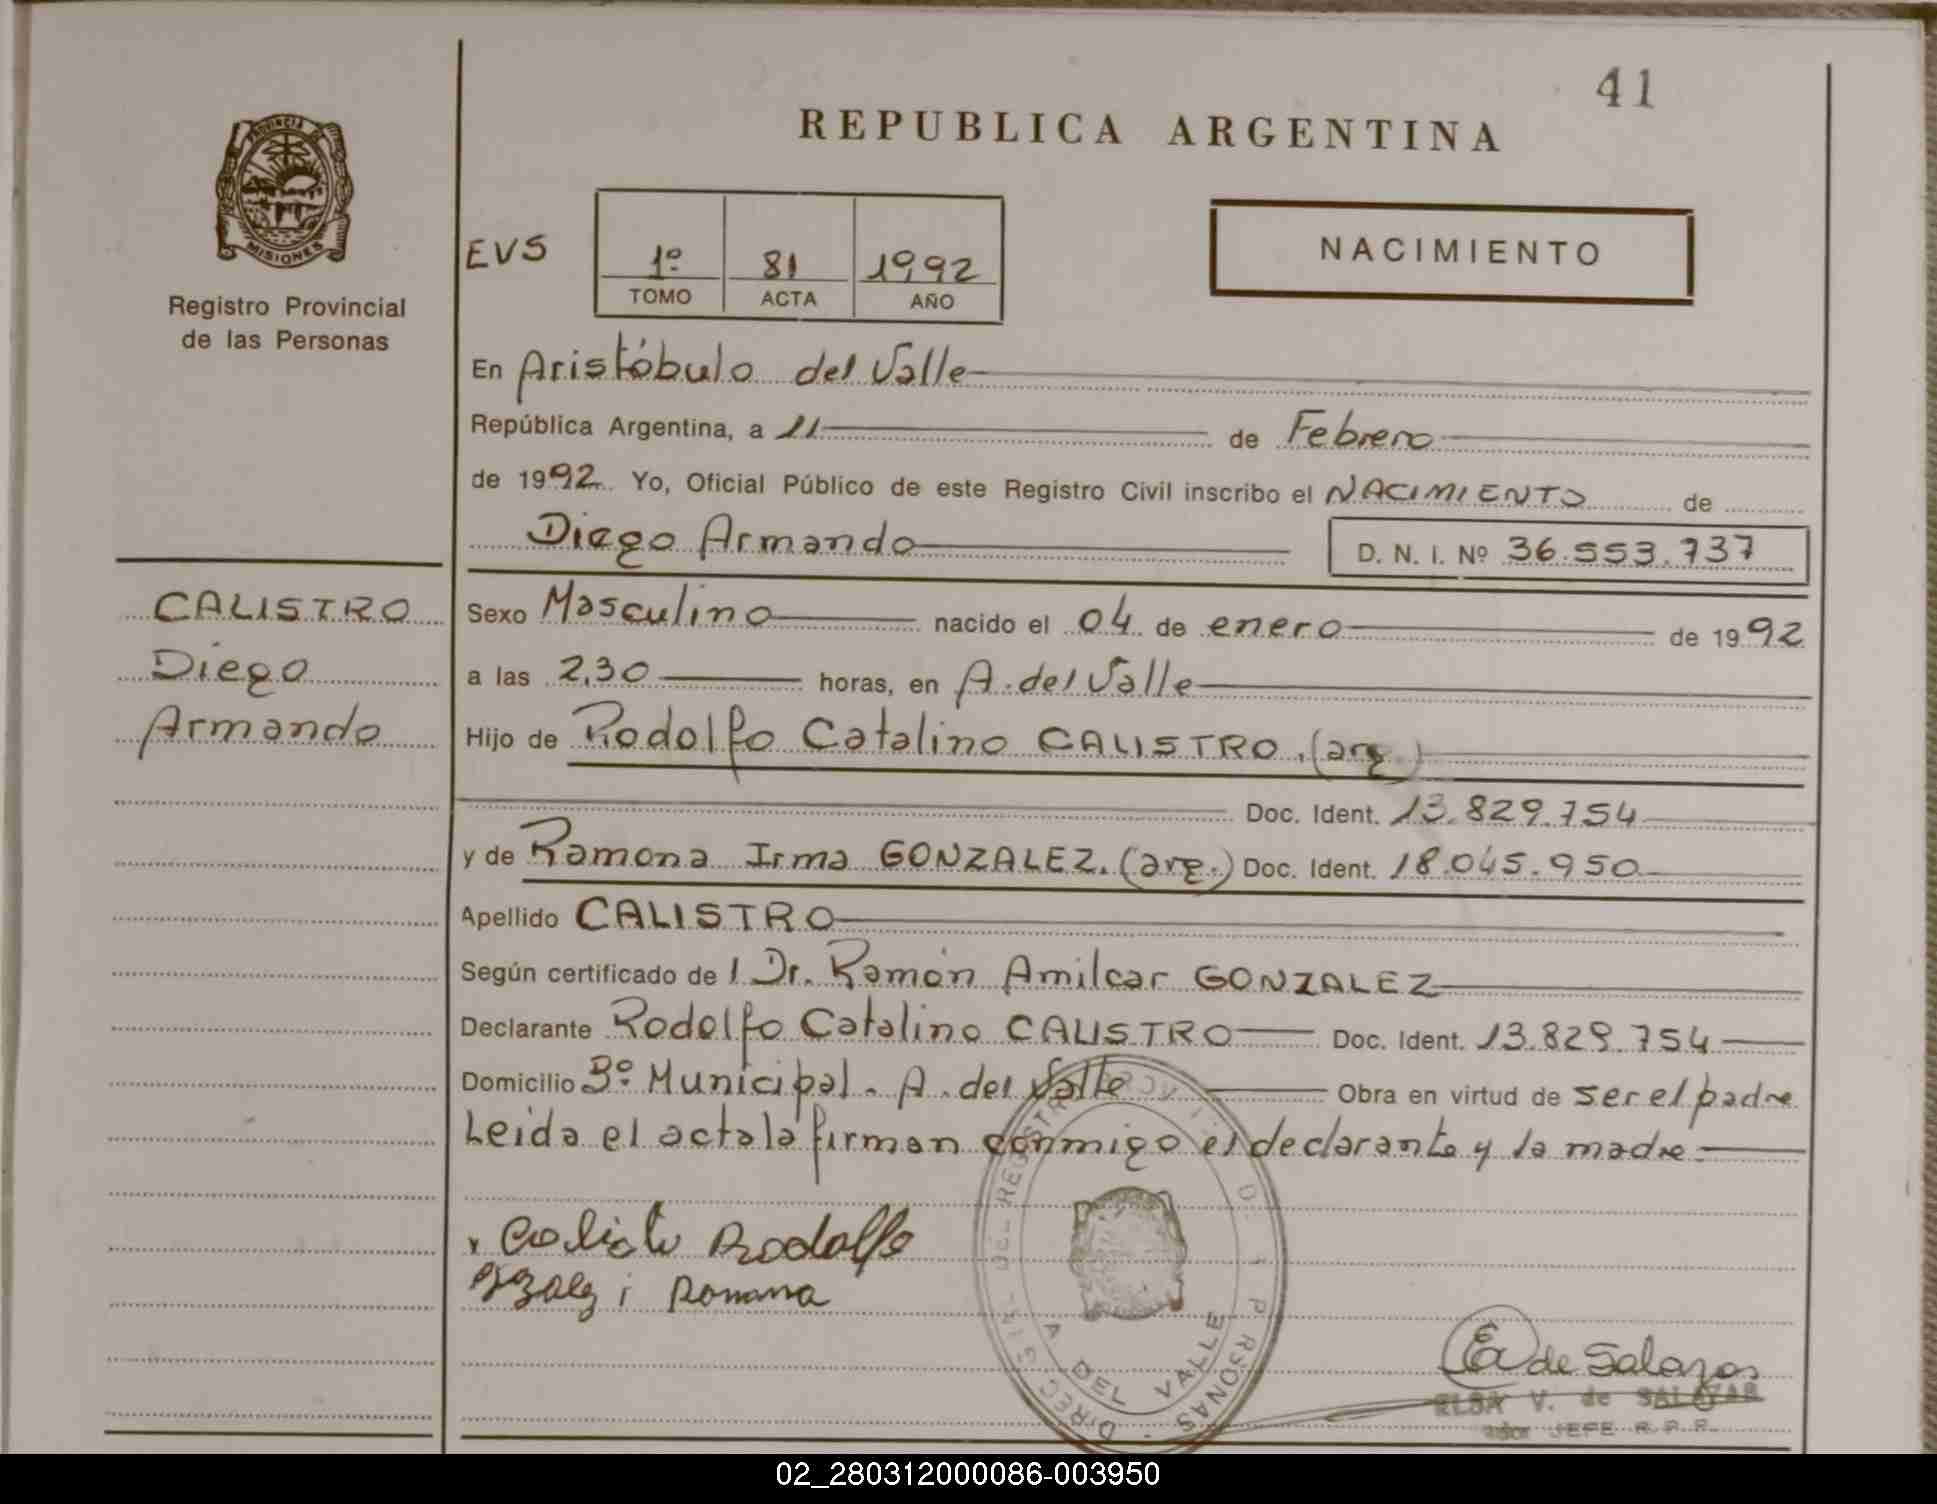 41
REPUBLICA ARGENTINA
PROVINCIA DE
MISIONES
Registro Provincial
de las Personas
EVS
1º 81 1992
TOMO ACTA AÑO
NACIMIENTO
En Aristóbulo del Valle
República Argentina, a 11 de Febrero
de 1992 Yo, Oficial Público de este Registro Civil inscribo el NACIMIENTO de
Diego Armando D. N. I. Nº 36.553.737
CALISTRO
Diego
Armando
Sexo Masculino nacido el 04 de enero de 1992
a las 2,30 horas, en A. del Valle
Hijo de Rodolfo Catalino CALISTRO. (arg.)
Doc. Ident. 13.829.754
y de Ramona Irma GONZALEZ. (arg.) Doc. Ident. 18.045.950
Apellido CALISTRO
Según certificado de l Dr. Ramón Amilcar GONZALEZ
Declarante Rodolfo Catalino CALISTRO Doc. Ident. 13.829.754
Domicilio Bº Municipal. A. del Valle Obra en virtud de ser el padre
Leida el acta la firman conmigo el declarante y la madre
Rodolfo
i Romana
A DEL VALLE
E de Salazar
ELSA V. de SALAZAR
JEFE R.P.P.
02_280312000086-003950